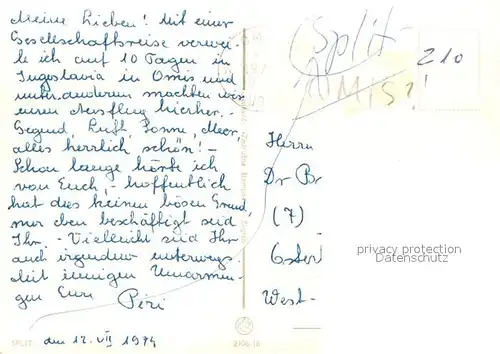 Meine Lieben! Mit einer
Gesellschaftsreise verwei-
le ich auf 10 Tagen in
Jugoslavia in Omis und
unter anderem machten wir
einen Ausflug hierher. -
Gegend, Luft, Sonne, Meer,
alles herrlich schön! -
Schon lange hörte ich
von Euch, - hoffentlich
hat dies keinen bösen Grund,
nur eben beschäftigt seid
Ihr. - Vielleicht seid Ihr
auch irgendwo unterwegs.
Mit innigen Umarmun-
gen Eure Piri
den 12. VII 1974
SPLIT
(Split
OMIS?!
210
Herrn
Dr Br
(7)
West-
privacy protection
Datenschutz